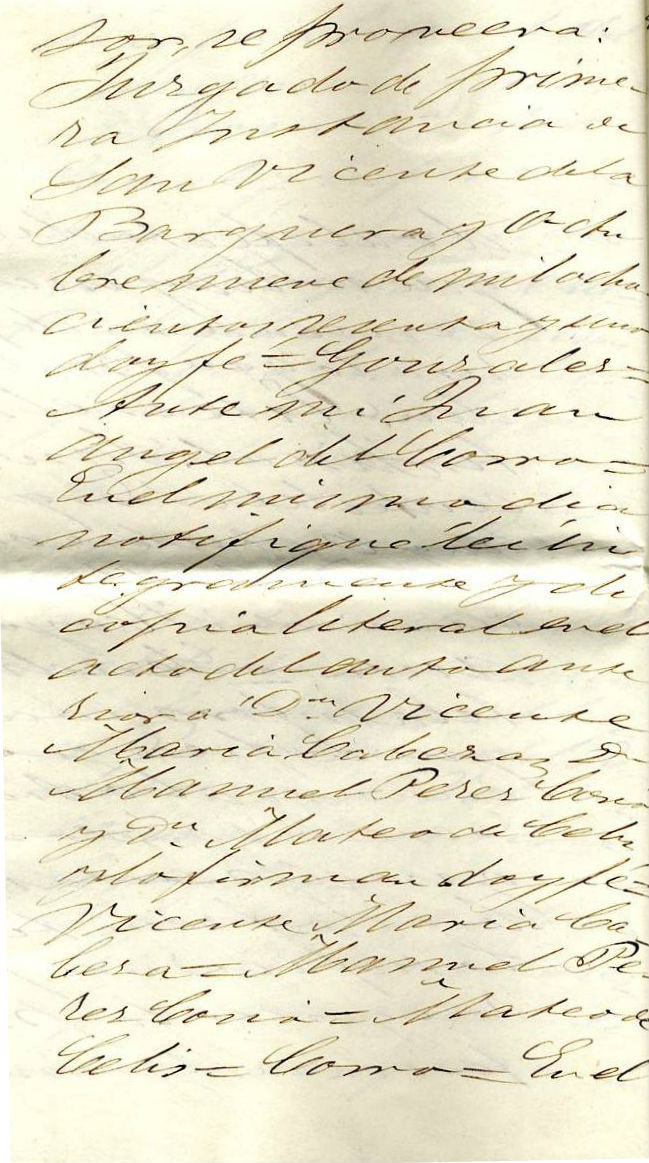 sor, se proveera:
Juzgado de prime-
ra Instancia de
San Vicente de la
Barquera y Octu
bre nueve de mil ocho-
cientos sesenta y uno
doy fe = Gonzales =
Ante mi Juan
Angel del Corro =
En el mismo dia
notifiqué lei in
tegramente y di
copia literal en el
acto del auto ante
rior a Dn Vicente
Maria Cabeza, Dn
Manuel Perez
y Dn Mateo de Celis
y lo firman doy fé =
Vicente Maria Ca
beza = Manuel Pe-
rez = Mateo de
Celis = Corro = En el